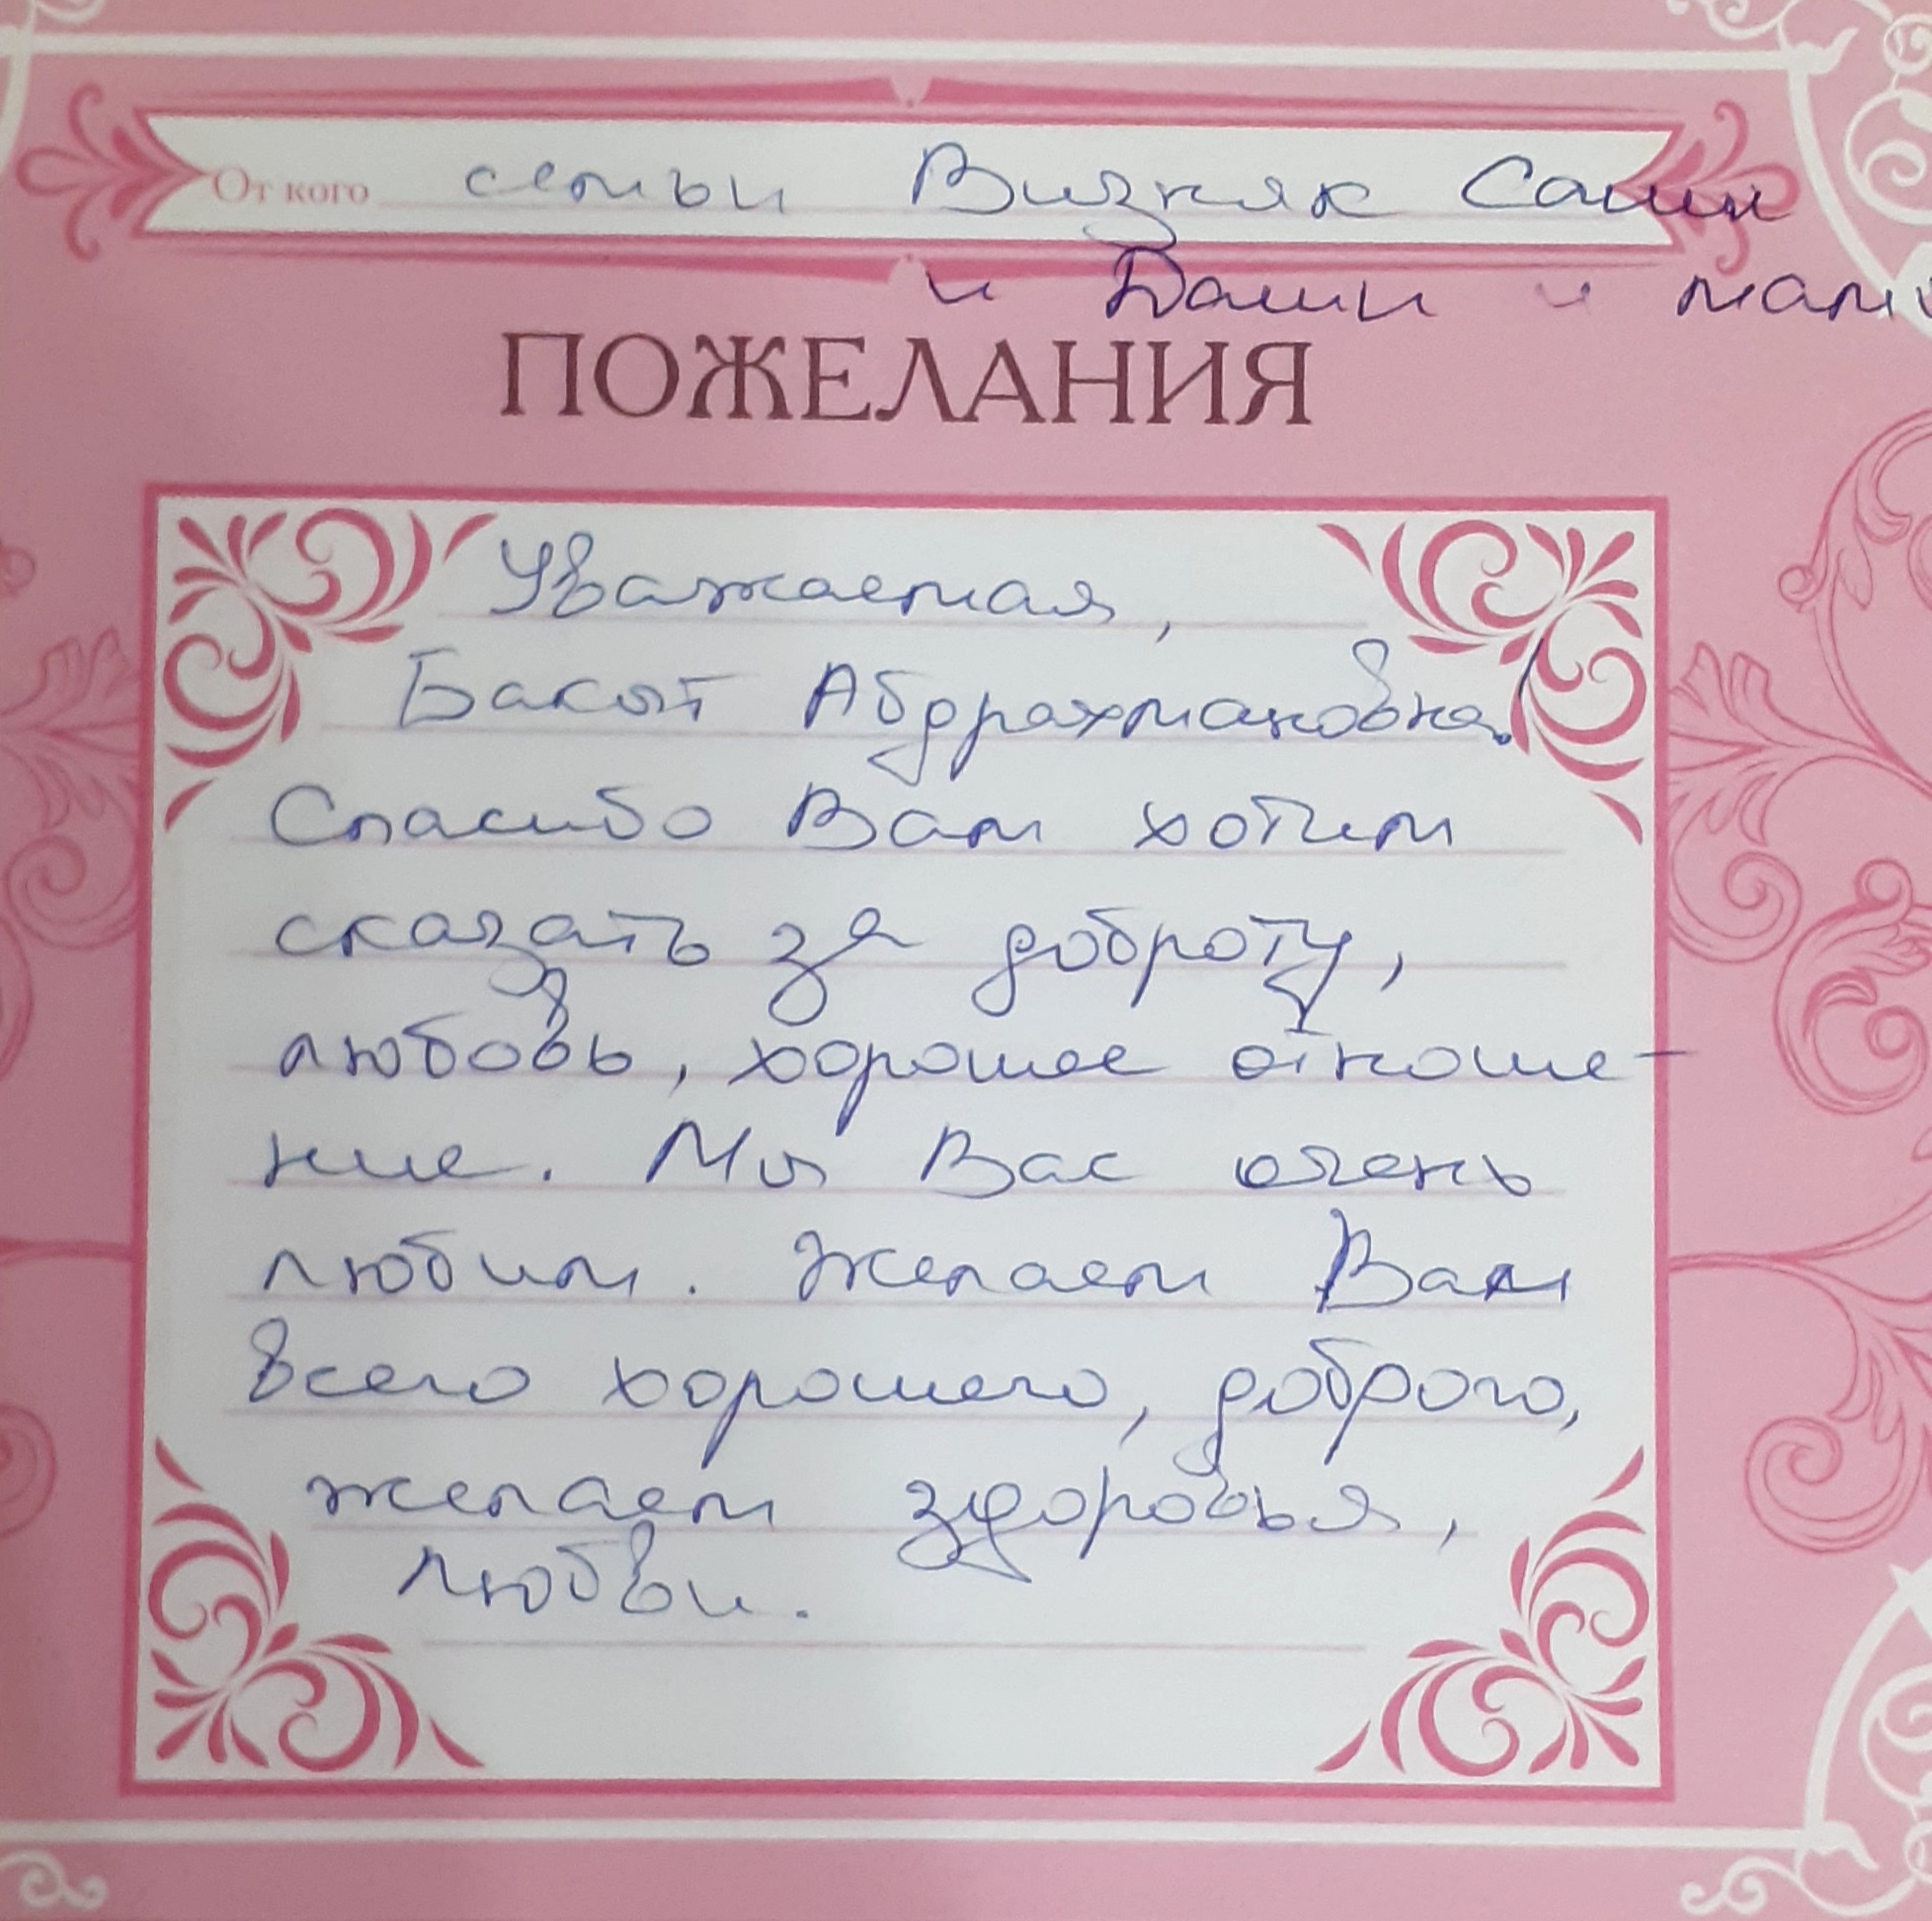 От кого семьи Визняк Саши
и Даши и мам
ПОЖЕЛАНИЯ
Уважаемая,
Бакыт Абдрахмановна!
Спасибо Вам хотим
сказать за доброту,
любовь, хорошее отноше-
ние. Мы Вас очень
любим. Желаем Вам
всего хорошего, доброго,
желаем здоровья,
любви.